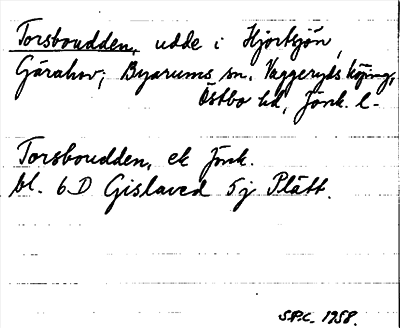 Torsboudden, udde i Hjortsjön,
Gärahov; Byarums sn. Vaggeryds köping,
Östbo hd, Jönk. l-
Torsboudden, ek Jönk.
bl. 6D Gislaved 5j Plätt.
S.P.C. 1958.